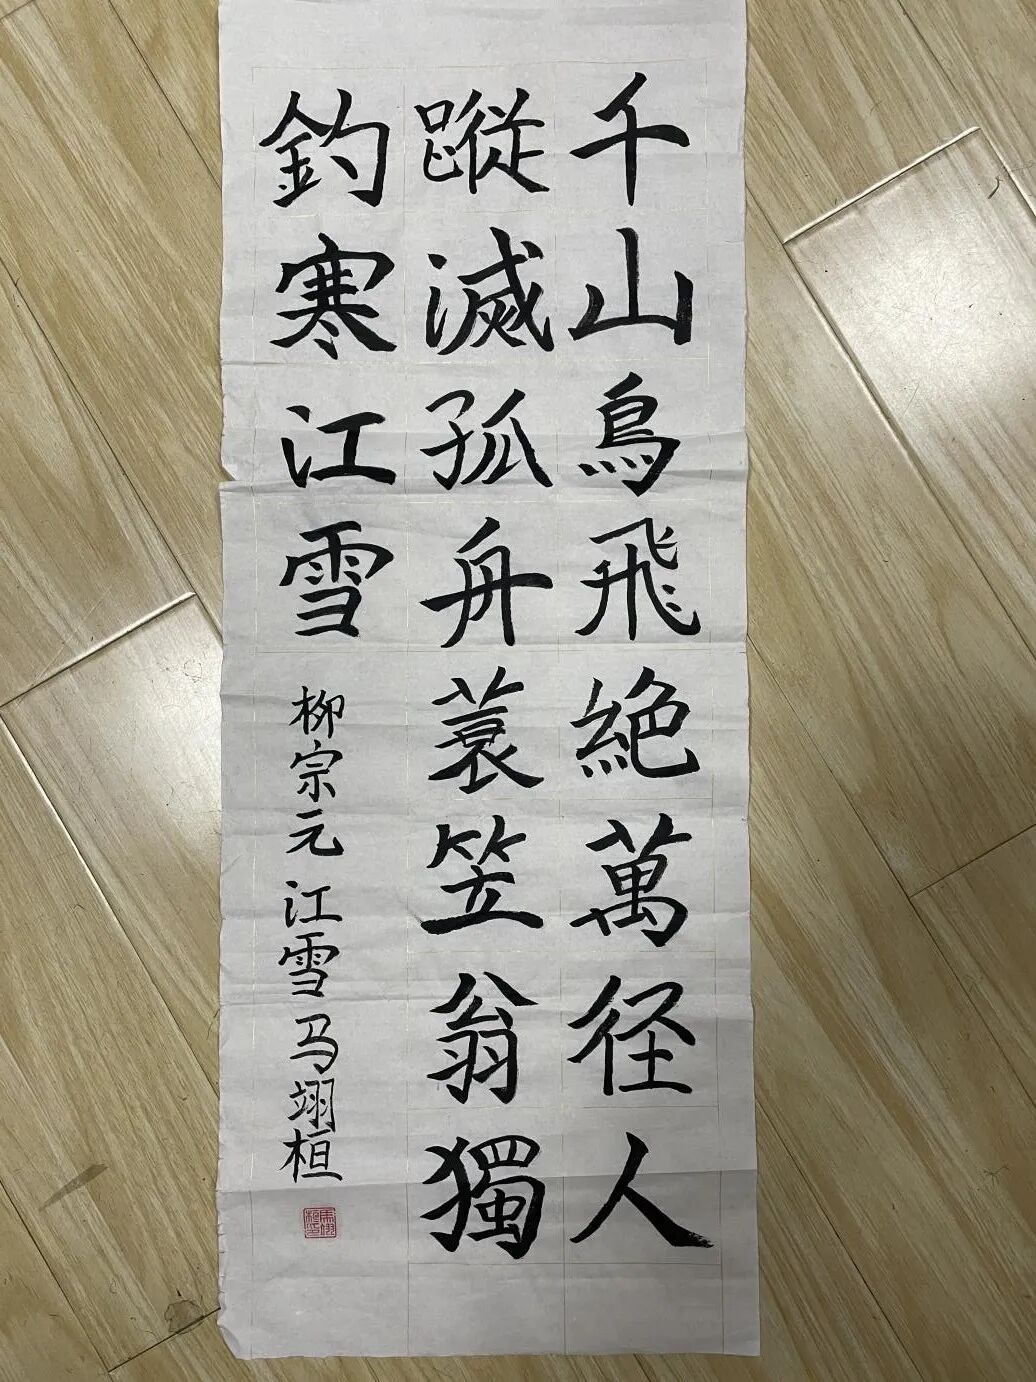 千山鳥飛絶萬径人
蹤滅孤舟蓑笠翁獨
釣寒江雪
柳宗元 江雪 马翊桓